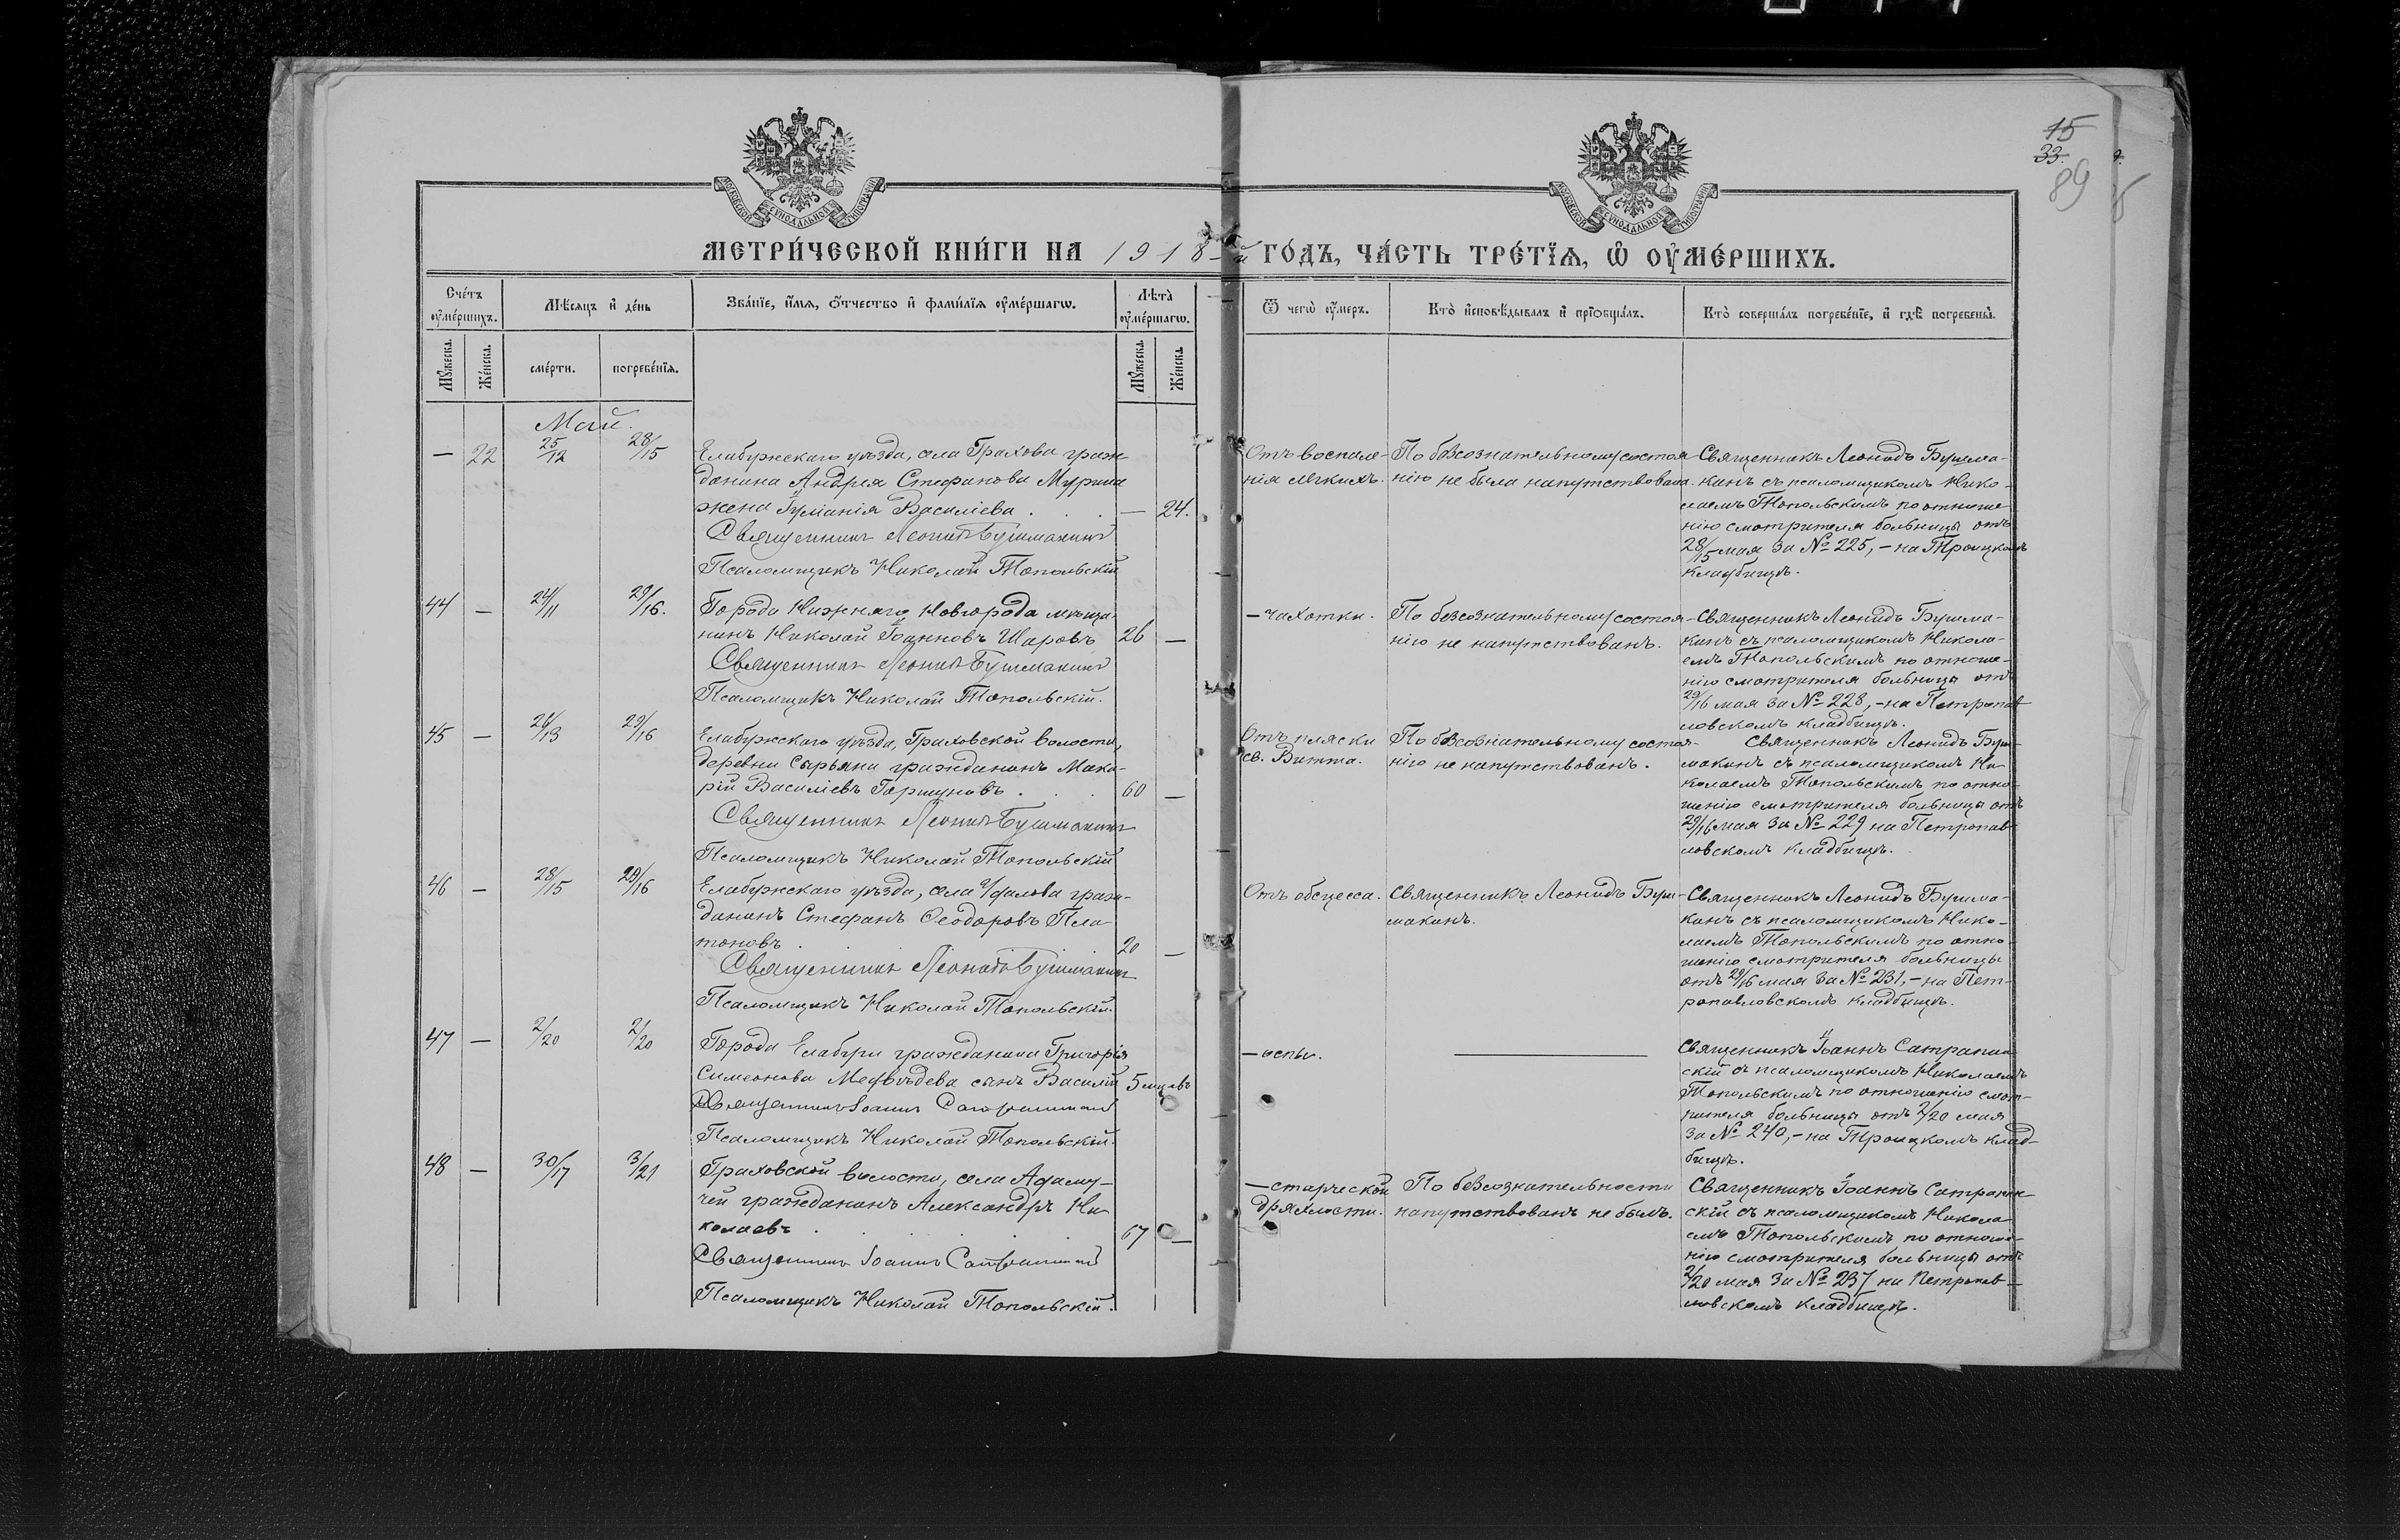 15
33.
89
МОСКОВСКОЙ СУНОДАЛЬНОЙ ТИПОГРАФІИ
МОСКОВСКОЙ СУНОДАЛЬНОЙ ТИПОГРАФІИ
МЕТРИ́ЧЕСКОЙ КНИ́ГИ НА 1918-й ГО́ДЪ, ЧА́СТЬ ТРЕ́ТЇѦ, Ѡ҆ ОУ҆МЕ́РШИХЪ.
Сче́тъ оу҆ме́ршихъ.
Мѣ́сяцъ и҆ де́нь
Зва́нїе, и҆́мя, ѻ҆́тчество и҆ фами́лїя оу҆ме́ршагѡ.
Лѣ́та̀ оу҆ме́ршагѡ.
Ѿ чегѡ̀ оу҆́меръ.
Кто̀ и҆сповѣ́дывалъ и҆ прїѡбща́лъ.
Кто̀ соверша́лъ погребе́нїе, и҆ гдѣ̀ погребены̀.
Му́жеска.
Же́нска.
сме́рти.
погребе́нїя.
Му́жеска.
Же́нска.
Май.
— 22 25/12 28/15 Елабужскаго уѣзда, села Грахова граж-
данина Андрея Стефанова Мурина
жена Іуліанія Василіева . . . — 24.
Священникъ Леонидъ Бушмакинъ
Псаломщикъ Николай Топольскій
Отъ воспале-
нія легкихъ.
По безсознательному состоя-
нію не была напутствована.
Священникъ Леонидъ Бушма-
кинъ съ псаломщикомъ Нико-
лаемъ Топольскимъ по отноше-
нію смотрителя больницы отъ
28/15 мая за № 225, – на Троицкомъ
кладбищѣ.
44 — 24/11 29/16. Города Нижняго Новгорода мѣща-
нинъ Николай Іоанновъ Шаровъ 26 —
Священникъ Леонидъ Бушмакинъ
Псаломщикъ Николай Топольскій.
— чахотки.
По безсознательному состоя-
нію не напутствованъ.
Священникъ Леонидъ Бушма-
кинъ съ псаломщикомъ Никола-
емъ Топольскимъ по отноше-
нію смотрителя больницы отъ
29/16 мая за № 228, – на Петропав-
ловскомъ кладбищѣ.
45 — 26/13 29/16 Елабужскаго уѣзда, Граховской волости,
деревни Сарьяки гражданинъ Мака-
рій Василіевъ Горшуновъ . . . 60 —
Священникъ Леонидъ Бушмакинъ
Псаломщикъ Николай Топольскій
Отъ пляски
св. Витта.
По безсознательному состоя-
нію не напутствованъ.
Священникъ Леонидъ Буш-
макинъ съ псаломщикомъ Ни-
колаемъ Топольскимъ по отно-
шенію смотрителя больницы отъ
29/16 мая за № 229 на Петропав-
ловскомъ кладбищѣ.
46 — 28/15 29/16 Елабужскаго уѣзда, села Удалова граж-
данинъ Стефанъ Ѳеодоровъ Пла-
тоновъ . 20 —
Священникъ Леонидъ Бушмакинъ
Псаломщикъ Николай Топольскій.
Отъ абсцесса.
Священникъ Леонидъ Буш-
макинъ.
Священникъ Леонидъ Бушма-
кинъ съ псаломщикомъ Нико-
лаемъ Топольскимъ по отно-
шенію смотрителя больницы
отъ 29/16 мая за № 231, – на Пет-
ропавловскомъ кладбищѣ.
47 — 2/20 2/20 Города Елабуги гражданина Григорія
Симеонова Медвѣдева сынъ Василій 5 мцевъ
Священникъ Іоаннъ
Псаломщикъ Николай Топольскій.
— оспы.
—
Священникъ Іоаннъ Сатрапин-
скій съ псаломщикомъ Николаемъ
Топольскимъ по отношенію смот-
рителя больницы отъ 2/20 мая
за № 240, – на Троицкомъ клад-
бищѣ.
48 — 30/17 3/21 Граховской волости, села Адаму-
чей гражданинъ Александръ Ни-
колаевъ . . . . . 67 —
Священникъ Іоаннъ
Псаломщикъ Николай Топольскій.
— старческой
дряхлости.
По безсознательности
напутствованъ не былъ.
Священникъ Іоаннъ Сатрапин-
скій съ псаломщикомъ Никола-
емъ Топольскимъ по отноше-
нію смотрителя больницы отъ
2/20 мая за № 237 на Петропав-
ловскомъ кладбищѣ.